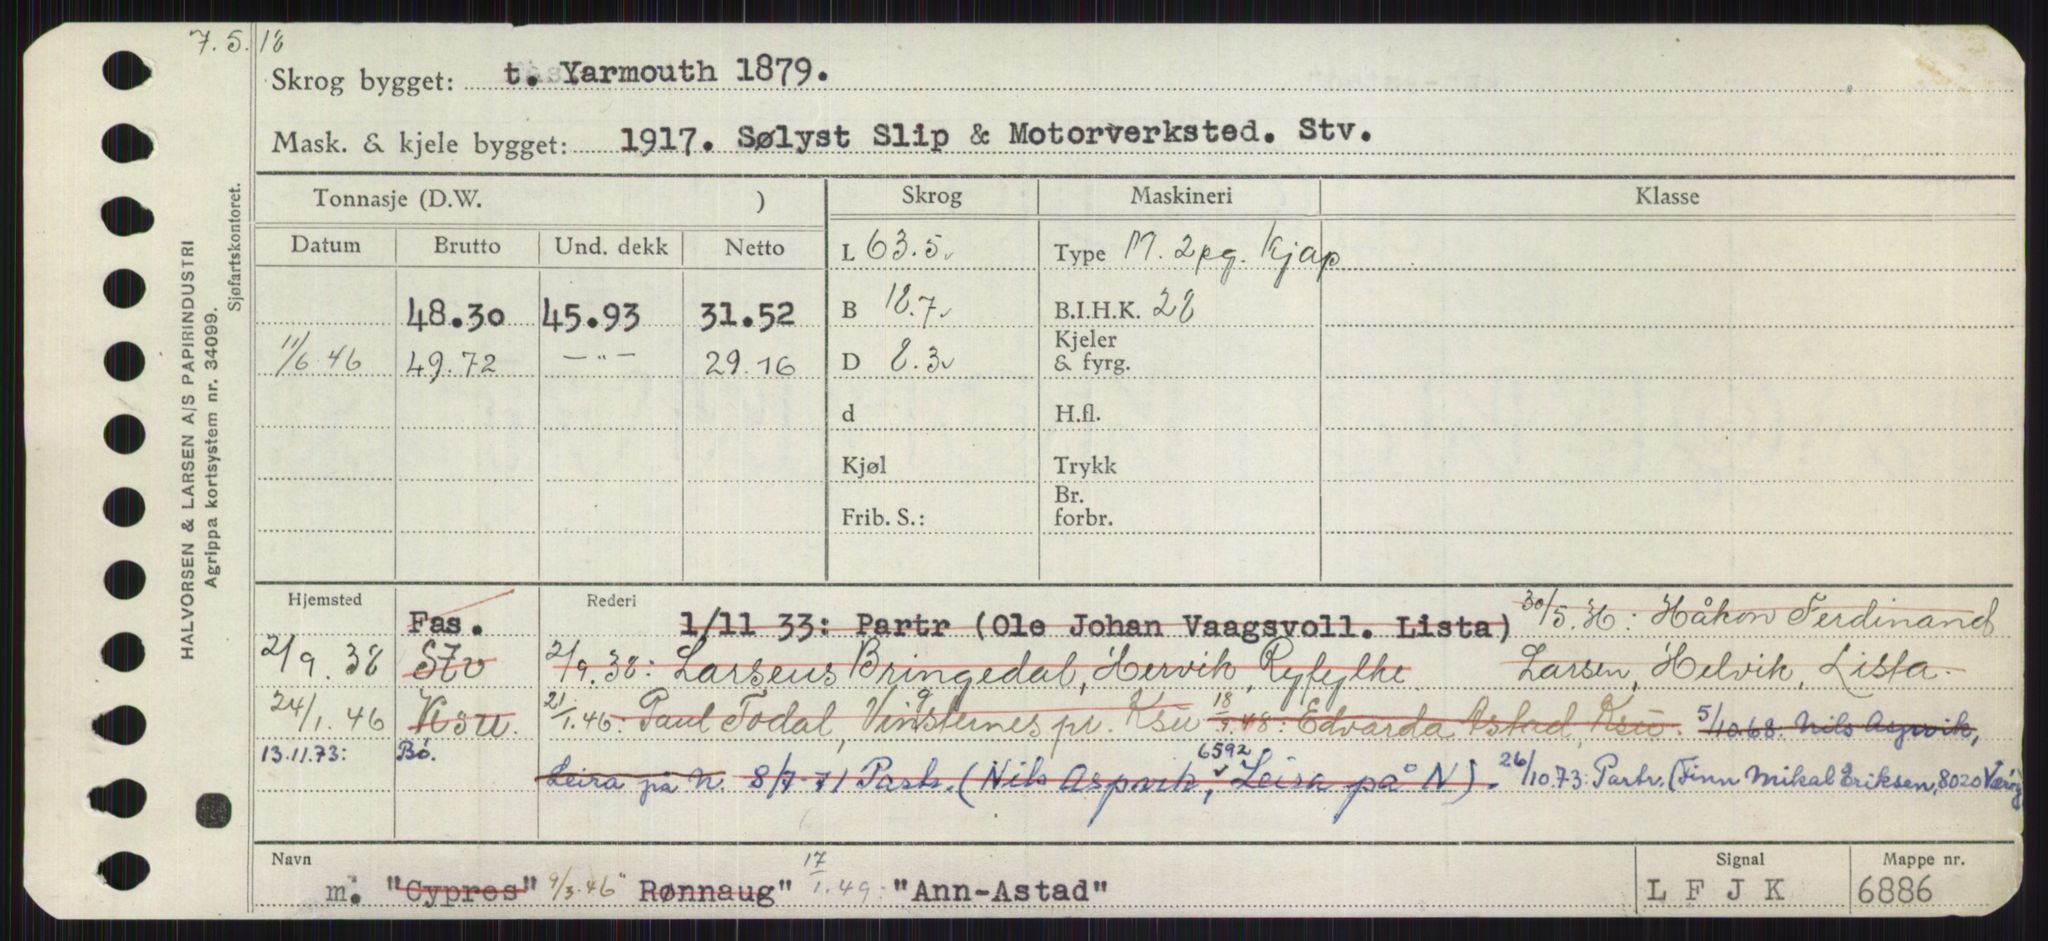 7.5.18
Skrog bygget: t. Yarmouth 1879.
Mask. & kjele bygget: 1917. Sølyst Slip & Motorverksted. Stv.
HALVORSEN & LARSEN A/S PAPIRINDUSTRI
Agrippa kortsystem nr. 34099.
Sjøfartskontoret.
Tonnasje (D.W. ) Skrog Maskineri Klasse
Datum Brutto Und. dekk Netto L 63.5 Type M. 2 pg. Kjap
48.30 45.93 31.52 B 18.7 B.I.H.K. 28
11/6.46 49.72 —"— 29.16 D 8.3 Kjeler & fyrg.
d H.fl.
Kjøl Trykk
Frib. S.: Br. forbr.
Hjemsted Rederi
Fas. 1/11 33: Partr (Ole Johan Vaagsvoll. Lista) 30/5. : Håkon Ferdinand
2/9.38 Stv 2/9.38: Larseus Bringedal, Hervik, Ryfylke Larsen, Helvik, Lista.
24/1.46 Ksu. 21/1.46: Paul Todal, Vingsternes pr. Ksu 18/9.48: Edvarda Astad, Ksu. 5/10.68. Nils Aspvik,
13.11.73: Bö. Leira på N. 8/7-71 Partr. (Nils Aspvik, 6592 Leira på N). 26/10.73: Partr. (Finn Mikal Eriksen, 8020 Værøy
Navn Signal Mappe nr.
m. "Cypres" 9/3.46 "Rønnaug" 17/1.49. "Ann-Astad" L F J K 6886